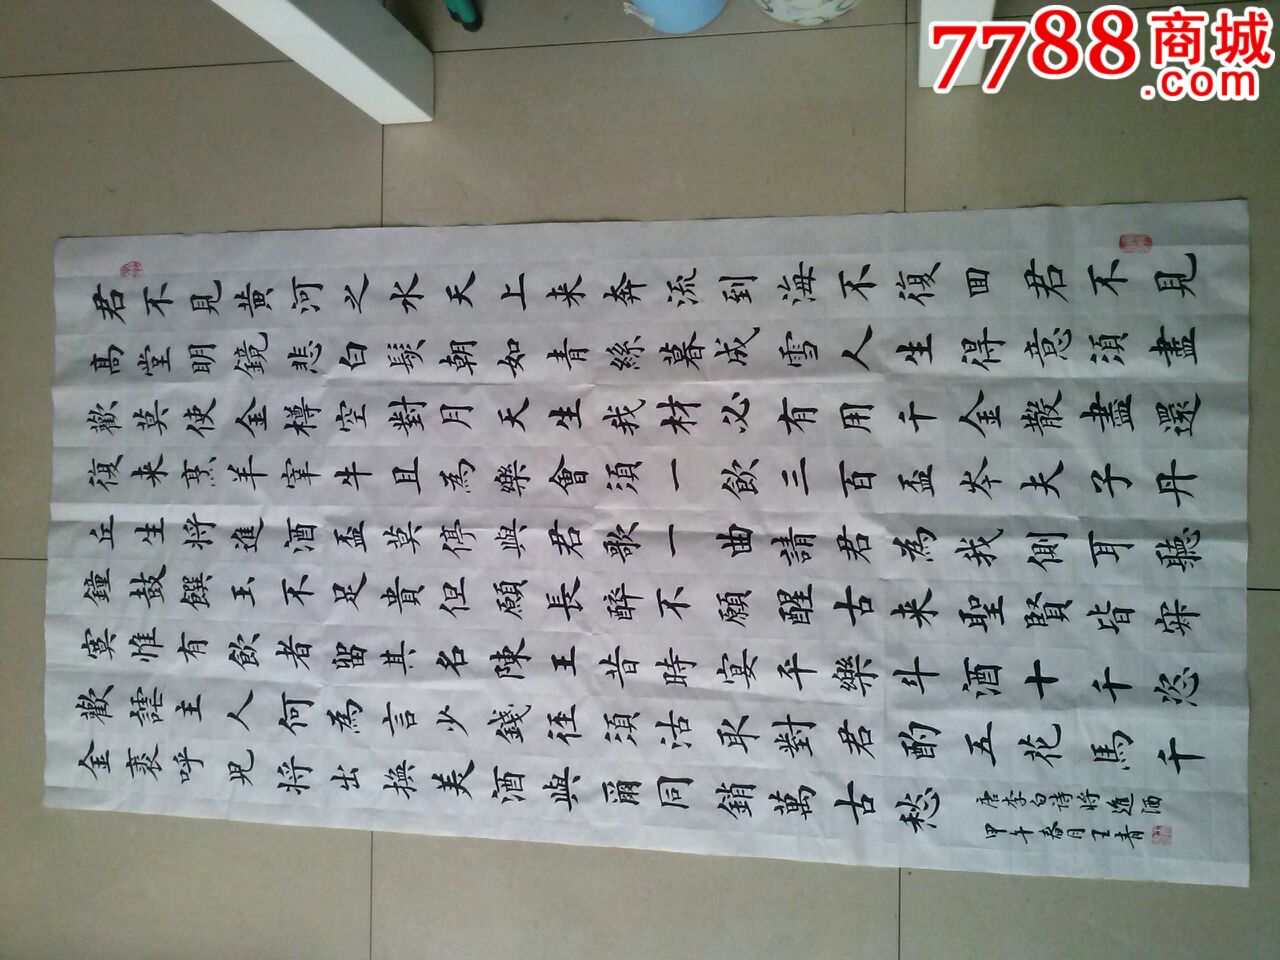 7788商城
.com
君不見黃河之水天上来奔流到海不復回君不見
高堂明鏡悲白髮朝如青絲暮成雪人生得意須盡
歡莫使金樽空對月天生我材必有用千金散盡還
復来烹羊宰牛且為樂會須一飲三百盃岑夫子丹
丘生将進酒盃莫停與君歌一曲請君為我側耳聽
鐘鼓饌玉不足貴但願長醉不願醒古来聖賢皆寂
寞惟有飲者留其名陳王昔時宴平樂斗酒十千恣
歡謔主人何為言少錢径須沽取對君酌五花馬千
金裘呼児将出換美酒與爾同銷萬古愁
唐李白诗将進酒
甲午春月王青